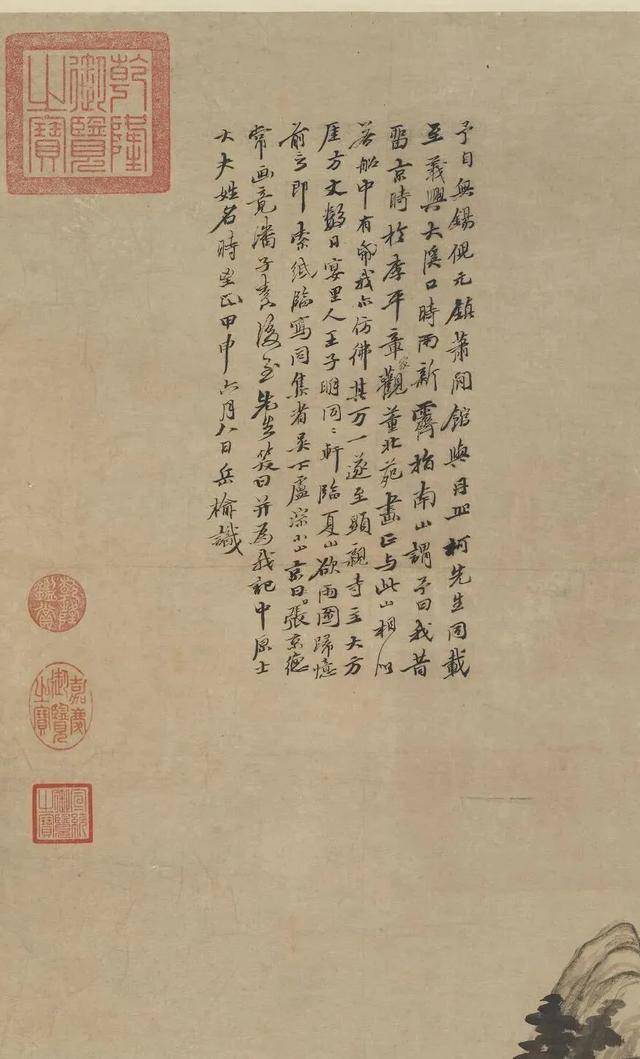 予自無錫倪元鎮蕭閒館與丹丘柯先生同載
至義興大溪口時雨新霽指南山謂予曰我昔
留京時於李平章家觀董北苑畫正与此山相似
若船中有帋我亦仿佛其万一遂至顯親寺主大方
厓方丈數日宴里人王子明同〻軒臨夏山欲雨圖歸憶
前言即索紙臨寫同集者吳下盧小山京口張京德
常画竟潘子素後至先生笑曰并為我記中原士
大夫姓名時至正甲申六月八日岳榆識
乾隆御覽之寶
乾隆鑑賞
嘉慶御覽之寶
宣統御覽之寶